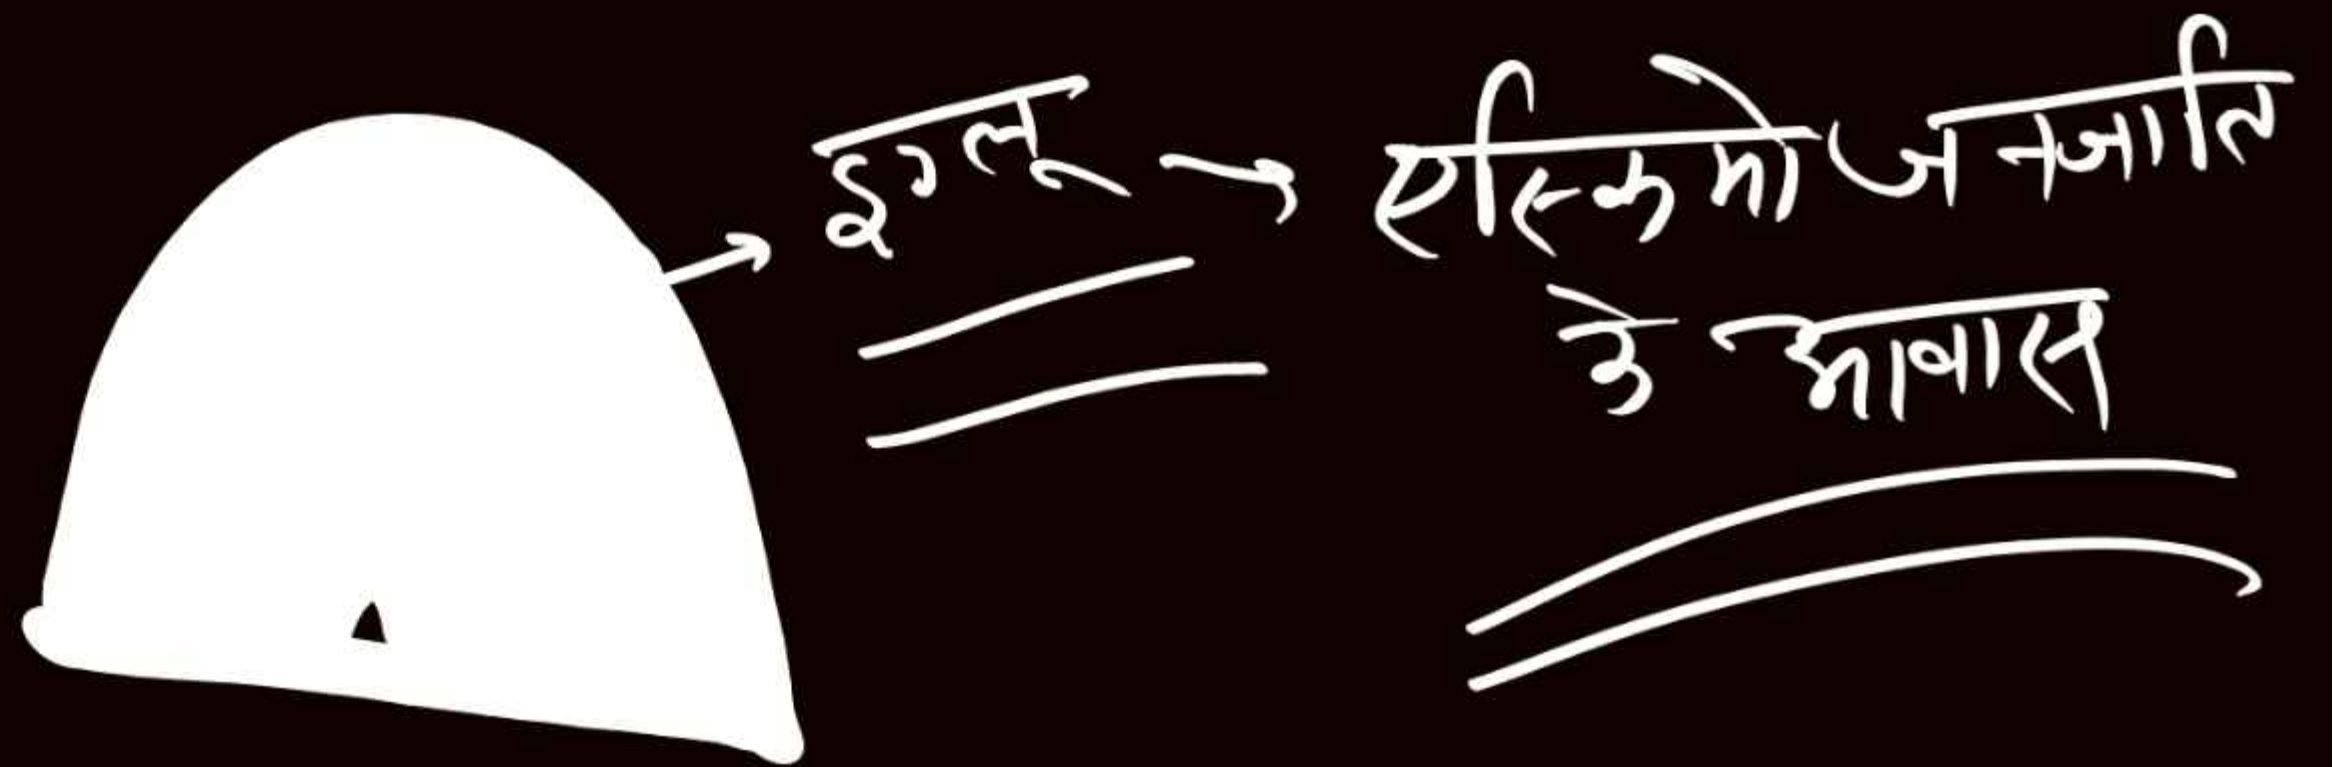 इग्लू → एस्किमो जनजाति
के आवास